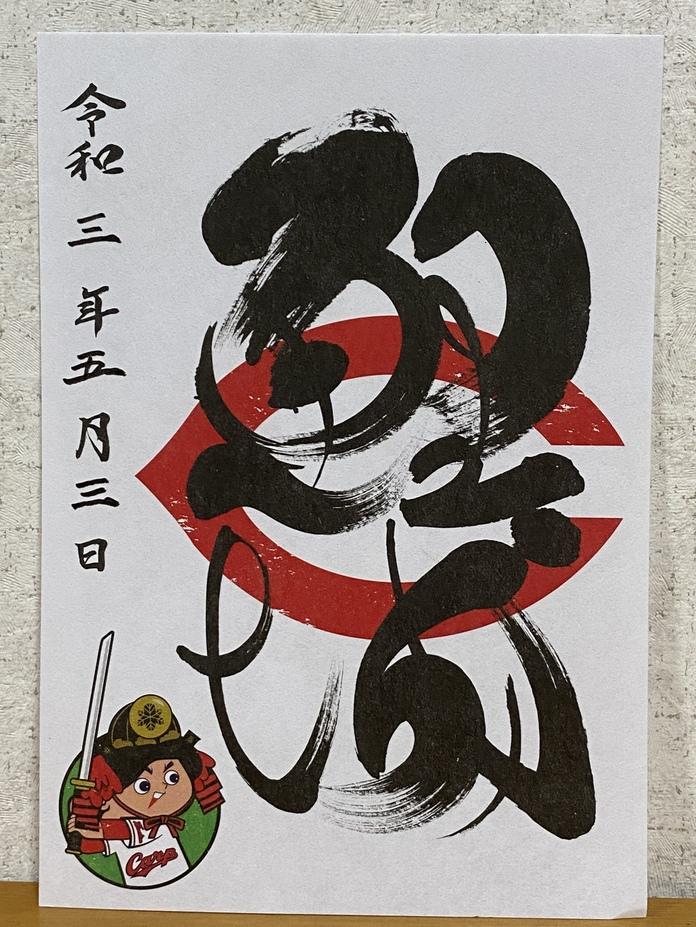 鯉城
令和三年五月三日
Carp